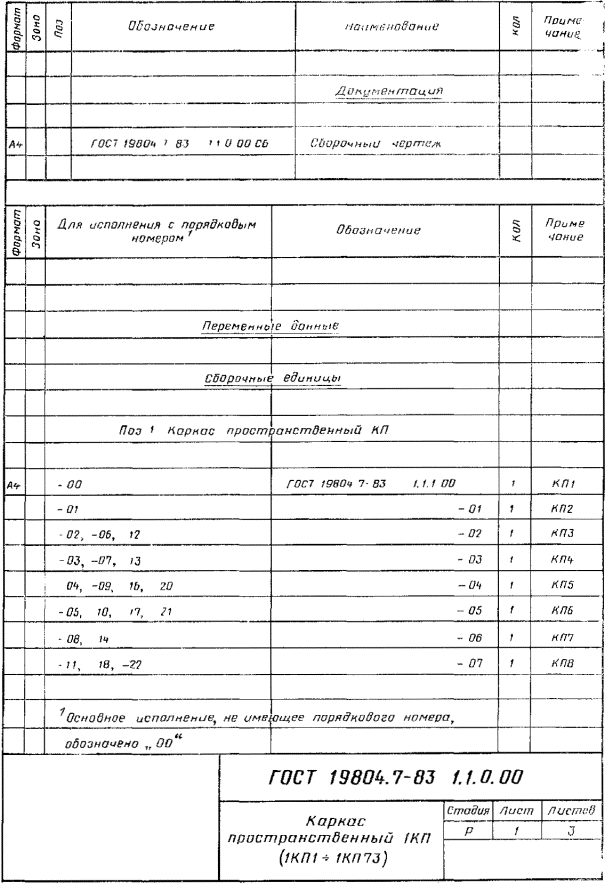 Формат Зона Поз Обозначение Наименование Кол Приме
чание
Документация
А4 ГОСТ 19804 7 83 1 1 0 00 СБ Сборочный чертеж
Формат Зона Для исполнения с порядковым
номером 1 Обозначение Кол Приме
чание
Переменные данные
Сборочные единицы
Поз 1 Каркас пространственный КП
А4 - 00 ГОСТ 19804 7-83 1.1.1 00 1 КП1
- 01 - 01 1 КП2
- 02, -06, 12 - 02 1 КП3
- 03, -07, 13 - 03 1 КП4
04, -09, 16, 20 - 04 1 КП5
- 05, 10, 17, 21 - 05 1 КП6
- 08, 14 - 06 1 КП7
- 11, 18, -22 - 07 1 КП8
1 Основное исполнение, не имеющее порядкового номера,
обозначено „ 00 “
ГОСТ 19804.7-83 1.1.0.00
Каркас
пространственный 1КП
(1КП1 ÷ 1КП73)
Стадия Лист Листов
Р 1 3